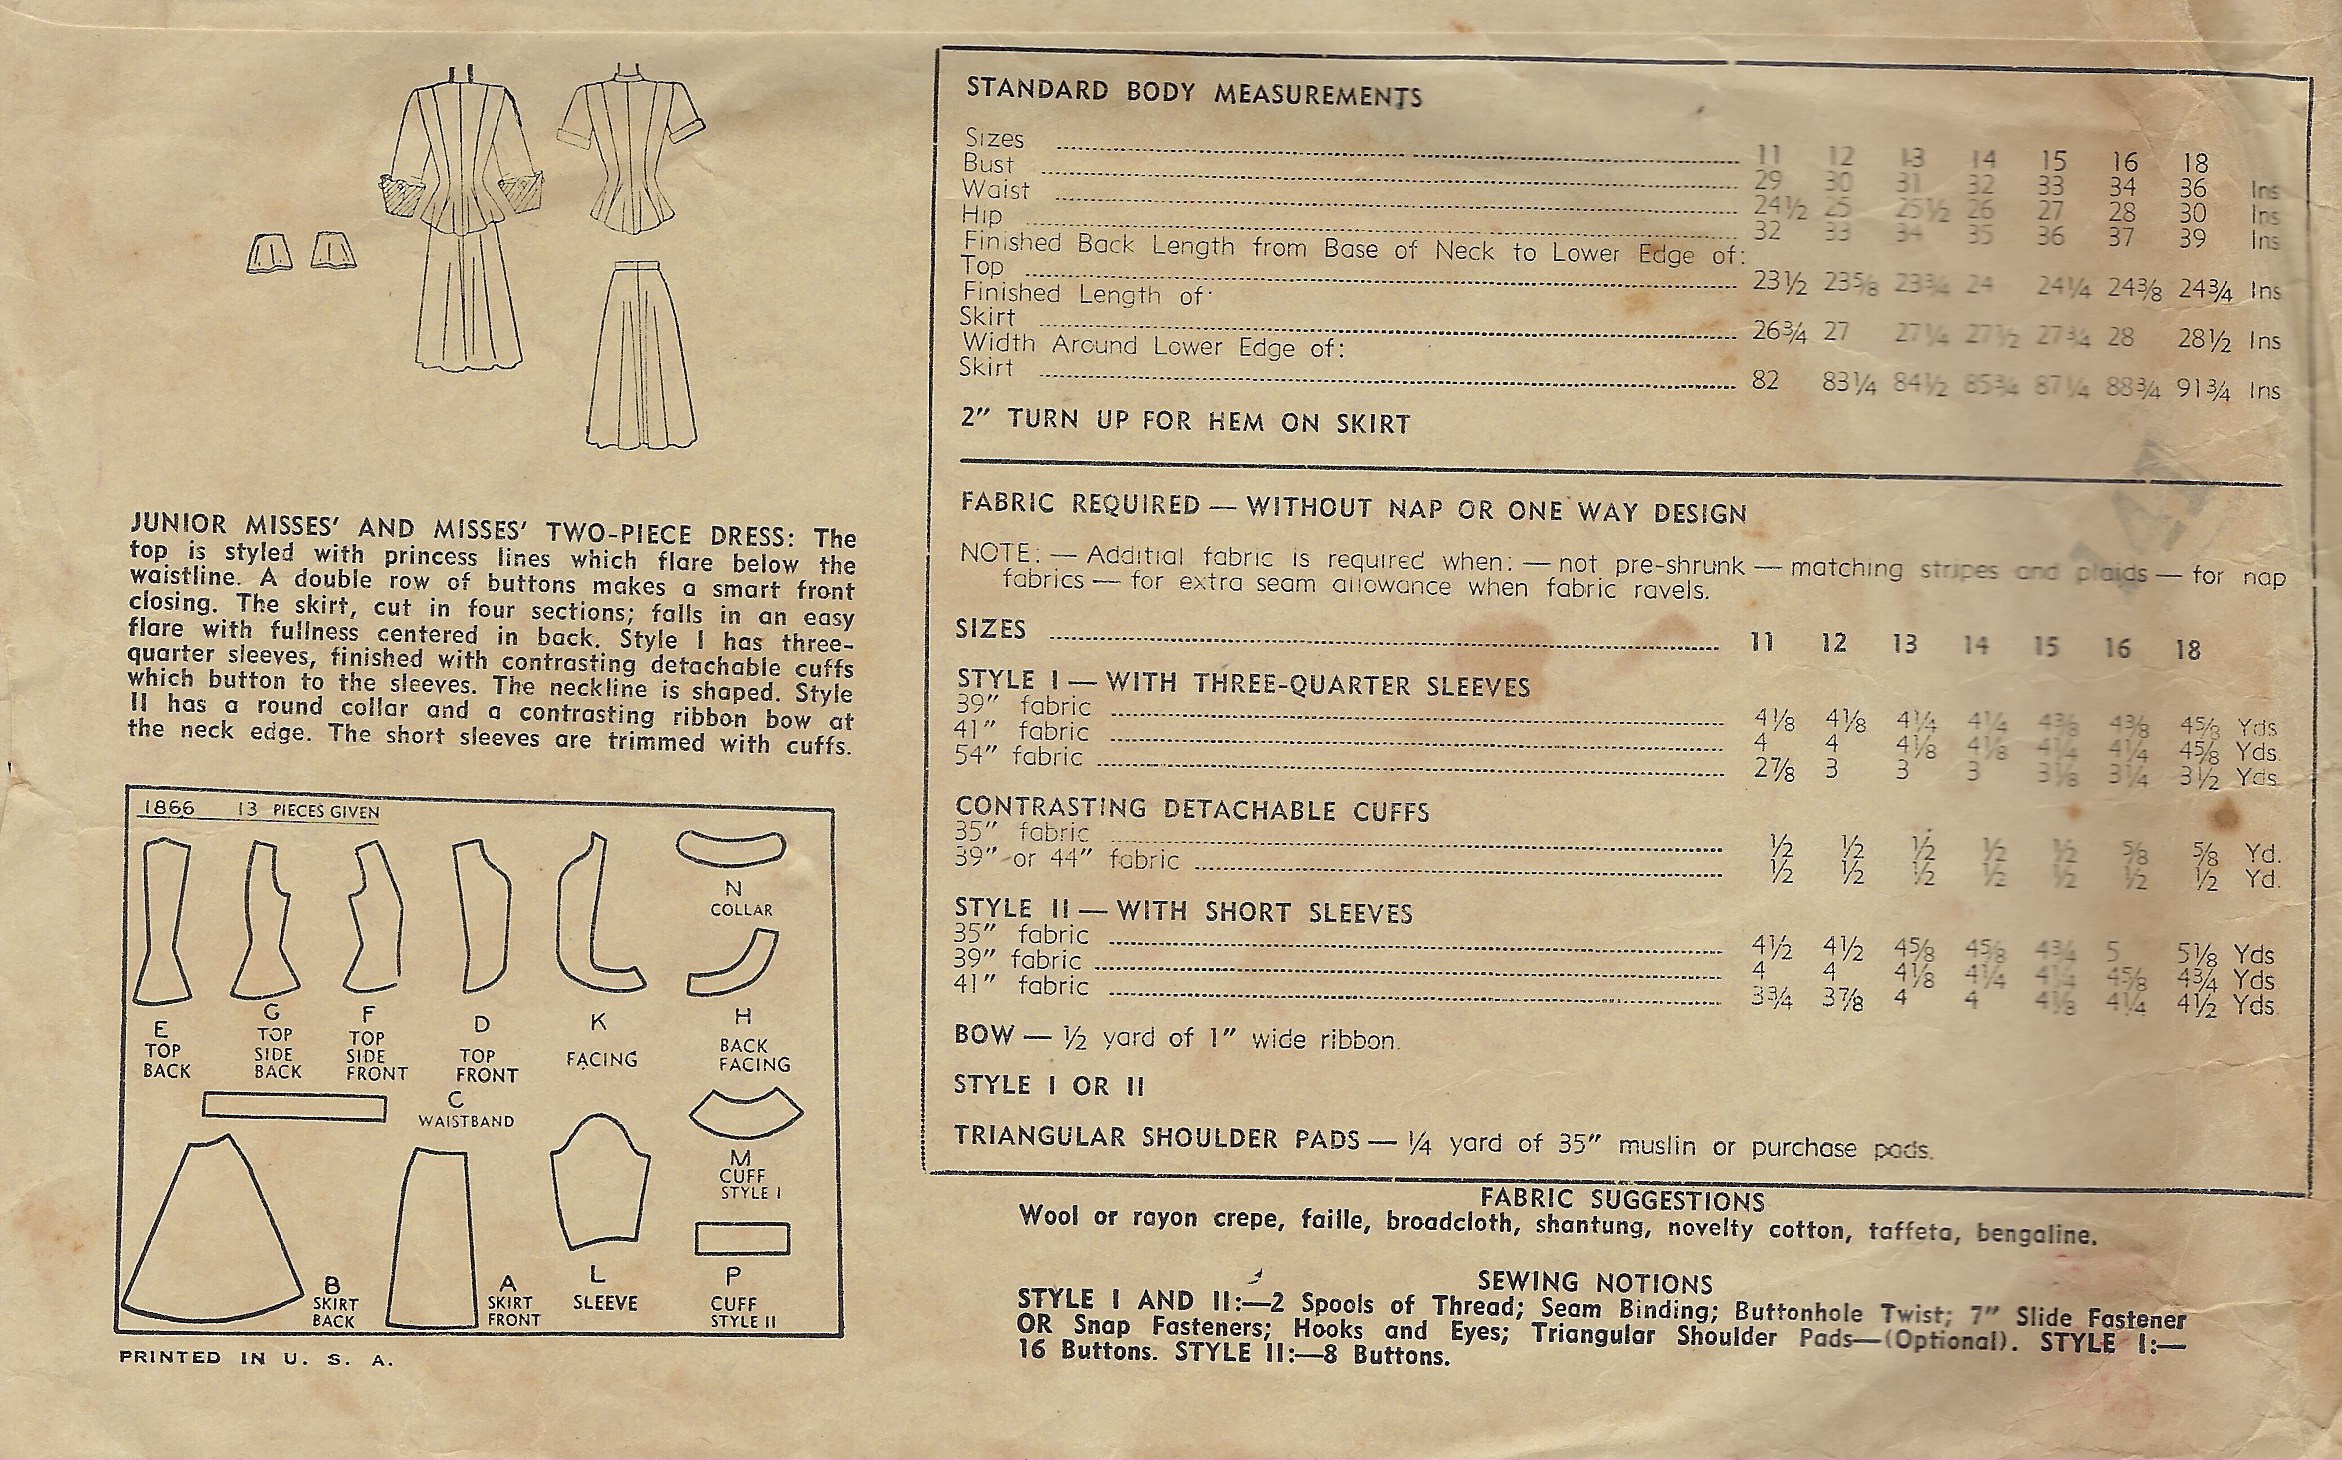 JUNIOR MISSES' AND MISSES' TWO-PIECE DRESS: The
top is styled with princess lines which flare below the
waistline. A double row of buttons makes a smart front
closing. The skirt, cut in four sections; falls in an easy
flare with fullness centered in back. Style I has three-
quarter sleeves, finished with contrasting detachable cuffs
which button to the sleeves. The neckline is shaped. Style
II has a round collar and a contrasting ribbon bow at
the neck edge. The short sleeves are trimmed with cuffs.
1866 13 PIECES GIVEN
E
TOP
BACK
G
TOP
SIDE
BACK
F
TOP
SIDE
FRONT
D
TOP
FRONT
K
FACING
N
COLLAR
H
BACK
FACING
C
WAISTBAND
M
CUFF
STYLE I
B
SKIRT
BACK
A
SKIRT
FRONT
L
SLEEVE
P
CUFF
STYLE II
PRINTED IN U. S. A.
STANDARD BODY MEASUREMENTS
Sizes 11 12 13 14 15 16 18
Bust 29 30 31 32 33 34 36 Ins
Waist 24½ 25 25½ 26 27 28 30 Ins
Hip 32 33 34 35 36 37 39 Ins
Finished Back Length from Base of Neck to Lower Edge of:
Top 23½ 23⅝ 23¾ 24 24¼ 24⅜ 24¾ Ins
Finished Length of
Skirt 26¾ 27 27¼ 27½ 27¾ 28 28½ Ins
Width Around Lower Edge of:
Skirt 82 83¼ 84½ 85¾ 87¼ 88¾ 91¾ Ins
2" TURN UP FOR HEM ON SKIRT
FABRIC REQUIRED — WITHOUT NAP OR ONE WAY DESIGN
NOTE: — Additial fabric is required when: — not pre-shrunk — matching stripes and plaids — for nap
fabrics — for extra seam allowance when fabric ravels.
SIZES 11 12 13 14 15 16 18
STYLE I — WITH THREE-QUARTER SLEEVES
39" fabric 4⅛ 4⅛ 4¼ 4¼ 4⅜ 4⅜ 4⅝ Yds
41" fabric 4 4 4⅛ 4⅛ 4¼ 4¼ 4⅝ Yds.
54" fabric 2⅞ 3 3 3 3⅛ 3¼ 3½ Yds.
CONTRASTING DETACHABLE CUFFS
35" fabric ½ ½ ½ ½ ½ ⅝ ⅝ Yd.
39" or 44" fabric ½ ½ ½ ½ ½ ½ ½ Yd.
STYLE II — WITH SHORT SLEEVES
35" fabric 4½ 4½ 4⅝ 4⅝ 4¾ 5 5⅛ Yds
39" fabric 4 4 4⅛ 4¼ 4¼ 4⅝ 4¾ Yds.
41" fabric 3¾ 3⅞ 4 4 4⅛ 4¼ 4½ Yds.
BOW — ½ yard of 1" wide ribbon.
STYLE I OR II
TRIANGULAR SHOULDER PADS — ¼ yard of 35" muslin or purchase pads.
FABRIC SUGGESTIONS
Wool or rayon crepe, faille, broadcloth, shantung, novelty cotton, taffeta, bengaline.
SEWING NOTIONS
STYLE I AND II:—2 Spools of Thread; Seam Binding; Buttonhole Twist; 7" Slide Fastener
OR Snap Fasteners; Hooks and Eyes; Triangular Shoulder Pads—(Optional). STYLE I:—
16 Buttons. STYLE II:—8 Buttons.